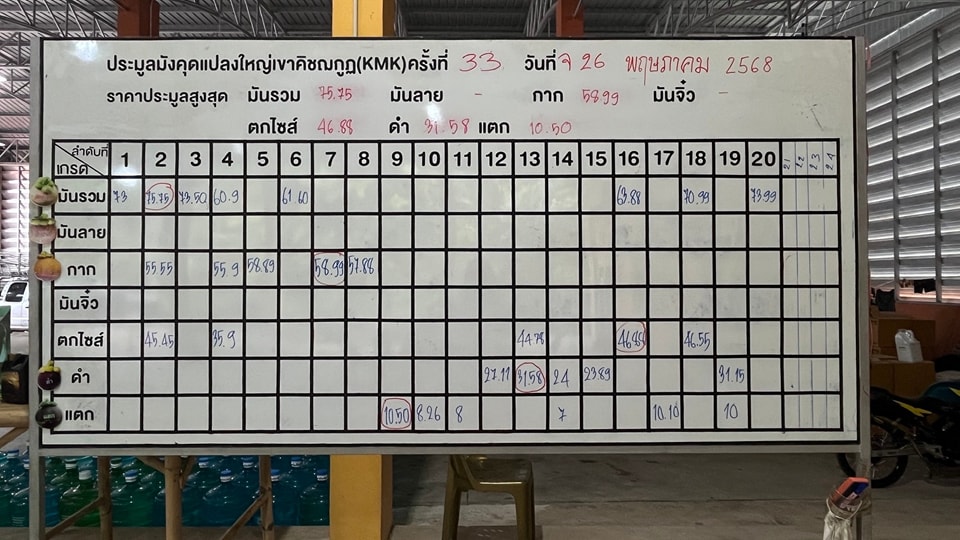 ประมูลมังคุดแปลงใหญ่เขาคิชฌกูฏ(KMK)ครั้งที่ 33 วันที่ จ 26 พฤษภาคม 2568
ราคาประมูลสูงสุด มันรวม 75.75 มันลาย - กาก 58.99 มันจิ๋ว -
ตกไซส์ 46.88 ดำ 31.58 แตก 10.50
ลำดับที่ เกรด 1 2 3 4 5 6 7 8 9 10 11 12 13 14 15 16 17 18 19 20 21 22 23 24
มันรวม 73 75.75 73.50 60.9 61.60 63.88 70.99 73.99
มันลาย
กาก 55.55 55.9 58.89 58.99 57.88
มันจิ๋ว
ตกไซส์ 45.45 35.9 44.78 46.88 46.55
ดำ 27.11 31.58 24 23.89 31.15
แตก 10.50 8.26 8 7 10.10 10